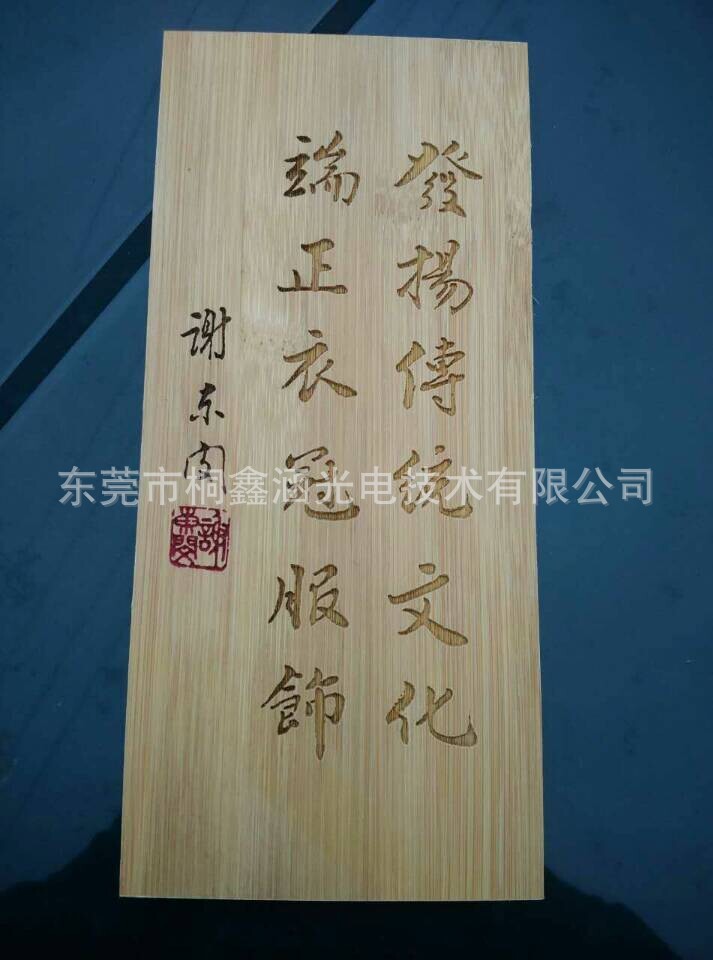 發揚傳統文化
端正衣冠服飾
谢东闵
謝東閔
东莞市桐鑫涵光电技术有限公司